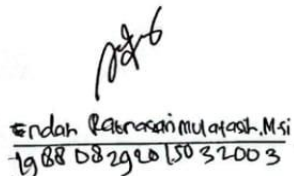 Endah Ratnasari Mulatasih, M.Si
19880829201.5032003